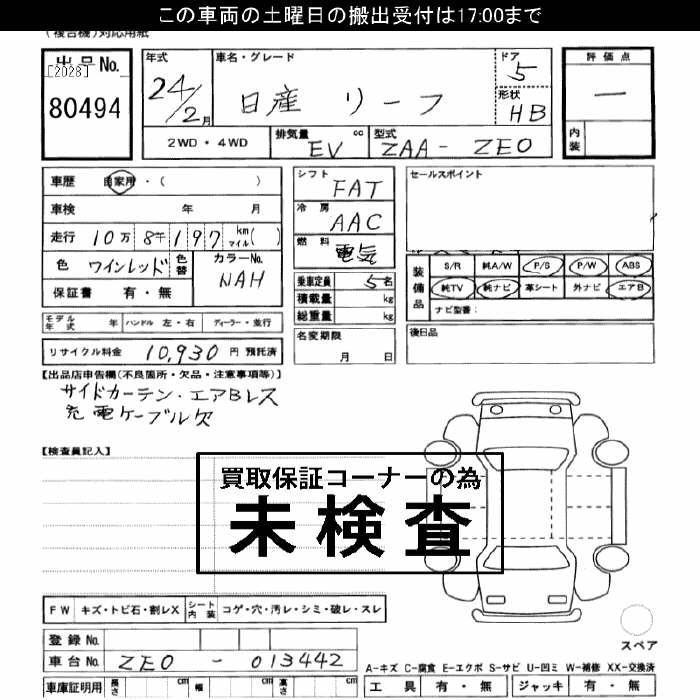 この車両の土曜日の搬出受付は17:00まで
(複合機)対応用紙
出品No.
[2028]
80494
年式
24/2月
車名・グレード
日産 リーフ
ドア
5
形状
HB
評価点
―
内装
2WD・4WD
排気量 cc
EV
型式
ZAA-ZEO
車歴 自家用・( )
車検 年 月
走行 10万8千197 km マイル( )
色 ワインレッド 色替
カラーNo.
NAH
保証書 有・無
シフト
FAT
冷房
AAC
燃料
電気
乗車定員 5名
積載量 kg
総重量 kg
セールスポイント
装備品
S/R 純A/W P/S P/W ABS
純TV 純ナビ 革シート 外ナビ エアB
ナビ型番:
モデル年式 年 ハンドル 左・右 ディーラー・並行
名変期限
月 日
後日品
リサイクル料金 10,930 円 預託済
【出品店申告欄(不良箇所・欠品・注意事項等)】
サイドカーテン・エアBレス
充電ケーブル欠
【検査員記入】
買取保証コーナーの為
未検査
FW キズ・トビ石・割レX シート内装 コゲ・穴・汚レ・シミ・破レ・スレ
登録No.
車台No. ZEO-013442
車庫証明用 長さ cm 幅 cm 高さ cm
スペア
A-キズ C-腐食 E-エクボ S-サビ U-凹ミ W-補修 XX-交換済
工具 有・無 ジャッキ 有・無